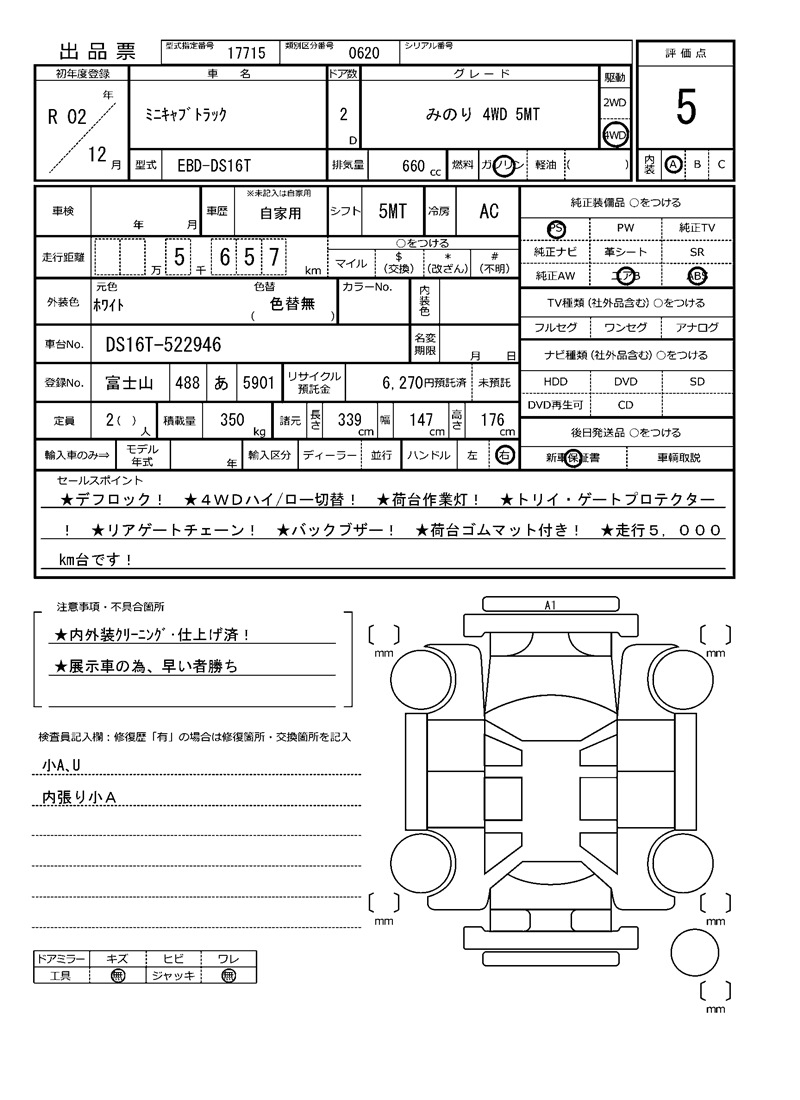 出品票 型式指定番号 17715 類別区分番号 0620 シリアル番号
評価点
5
内装 A B C
初年度登録 車名 ドア数 グレード 駆動
R 02 年 12 月 ﾐﾆｷｬﾌﾞﾄﾗｯｸ 2 D みのり 4WD 5MT 2WD 4WD
型式 EBD-DS16T 排気量 660 cc 燃料 ガソリン 軽油 ( )
車検 年 月 車歴 ※未記入は自家用 自家用 シフト 5MT 冷房 AC
走行距離 万 5 千 6 5 7 km ○をつける
マイル $(交換) *(改ざん) #(不明)
外装色 元色 ﾎﾜｲﾄ 色替 ( 色替無 ) カラーNo. 内装色
車台No. DS16T-522946 名変期限 月 日
登録No. 富士山 488 あ 5901 リサイクル預託金 6,270円預託済 未預託
定員 2 ( ) 人 積載量 350 kg 諸元 長さ 339 cm 幅 147 cm 高さ 176 cm
輸入車のみ⇒ モデル年式 年 輸入区分 ディーラー 並行 ハンドル 左 右
純正装備品 ○をつける
PS PW 純正TV
純正ナビ 革シート SR
純正AW エアB ABS
TV種類(社外品含む) ○をつける
フルセグ ワンセグ アナログ
ナビ種類(社外品含む) ○をつける
HDD DVD SD
DVD再生可 CD
後日発送品 ○をつける
新車保証書 車輌取説
セールスポイント
★デフロック！ ★４ＷＤハイ/ロー切替！ ★荷台作業灯！ ★トリイ・ゲートプロテクター
！ ★リアゲートチェーン！ ★バックブザー！ ★荷台ゴムマット付き！ ★走行５，０００
km台です！
注意事項・不具合箇所
★内外装ｸﾘｰﾆﾝｸﾞ･仕上げ済！
★展示車の為、早い者勝ち
検査員記入欄：修復歴「有」の場合は修復箇所・交換箇所を記入
小A､U
内張り小Ａ
ドアミラー キズ ヒビ ワレ
工具 無 ジャッキ 無
A1
mm
mm
mm
mm
mm